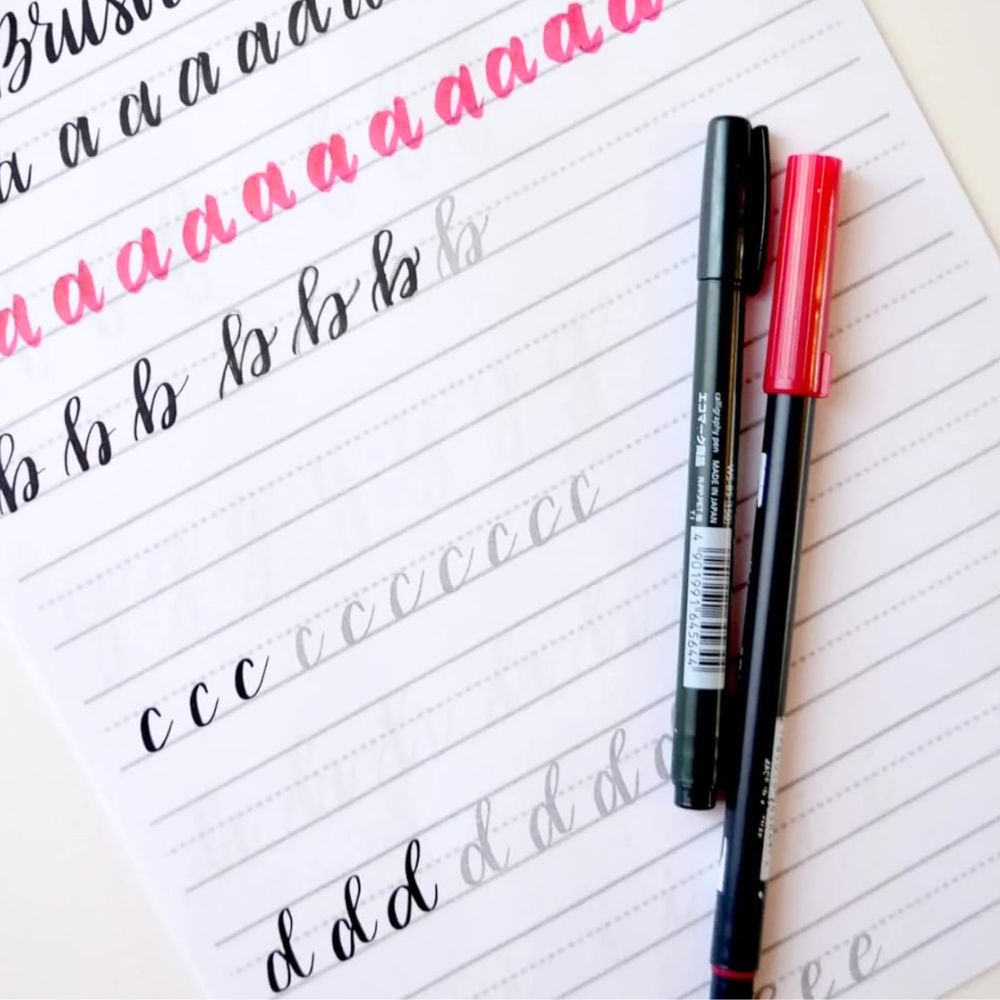 Brush
a a a a a a a
a a a a a a a a a a a
b b b b b b b
c c c c c c c c c c
d d d d d d d
e e e
WS-BS(150)
calligraphy pen MADE IN JAPAN
エコマーク商品
4 901991 645644